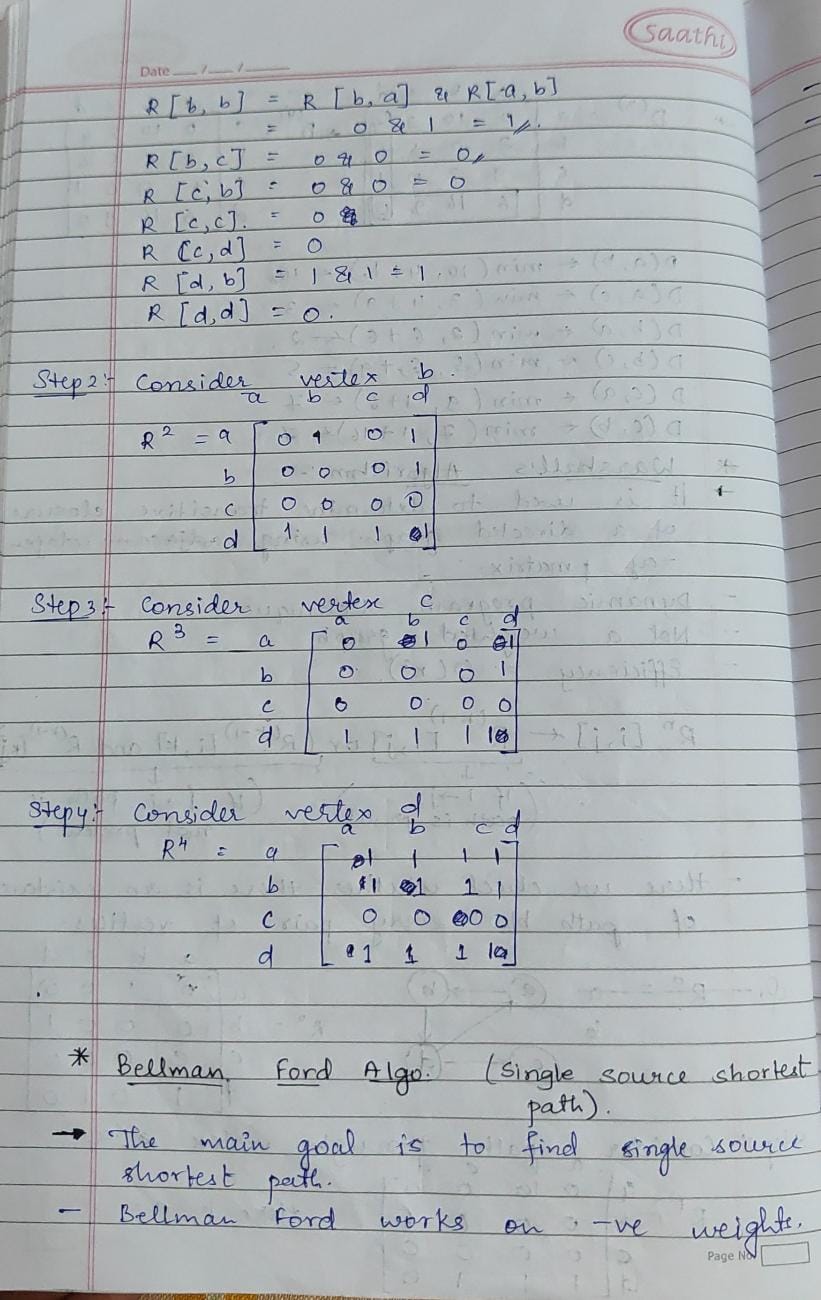 Saathi
Date __/__/__
R [b, b] = R [b, a] & R[a, b]
= 0 & 1 = 1//.
R [b, c] = 0 & 0 = 0//
R [c, b] = 0 & 0 = 0
R [c, c] = 0
R [c, d] = 0
R [d, b] = 1 & 1 = 1.
R [d, d] = 0.
Step 2:- Consider vertex b.
a b c d
R² = a 0 1 0 1
b 0 0 0 1
c 0 0 0 0
d 1 1 1 1
Step 3:- Consider vertex c
a b c d
R³ = a 0 1 0 1
b 0 0 0 1
c 0 0 0 0
d 1 1 1 1
Step 4:- Consider vertex d
a b c d
R⁴ = a 1 1 1 1
b 1 1 1 1
c 0 0 0 0
d 1 1 1 1
* Bellman Ford Algo. (Single source shortest
path).
→ The main goal is to find single source
shortest path.
- Bellman Ford works on -ve weights.
Page No